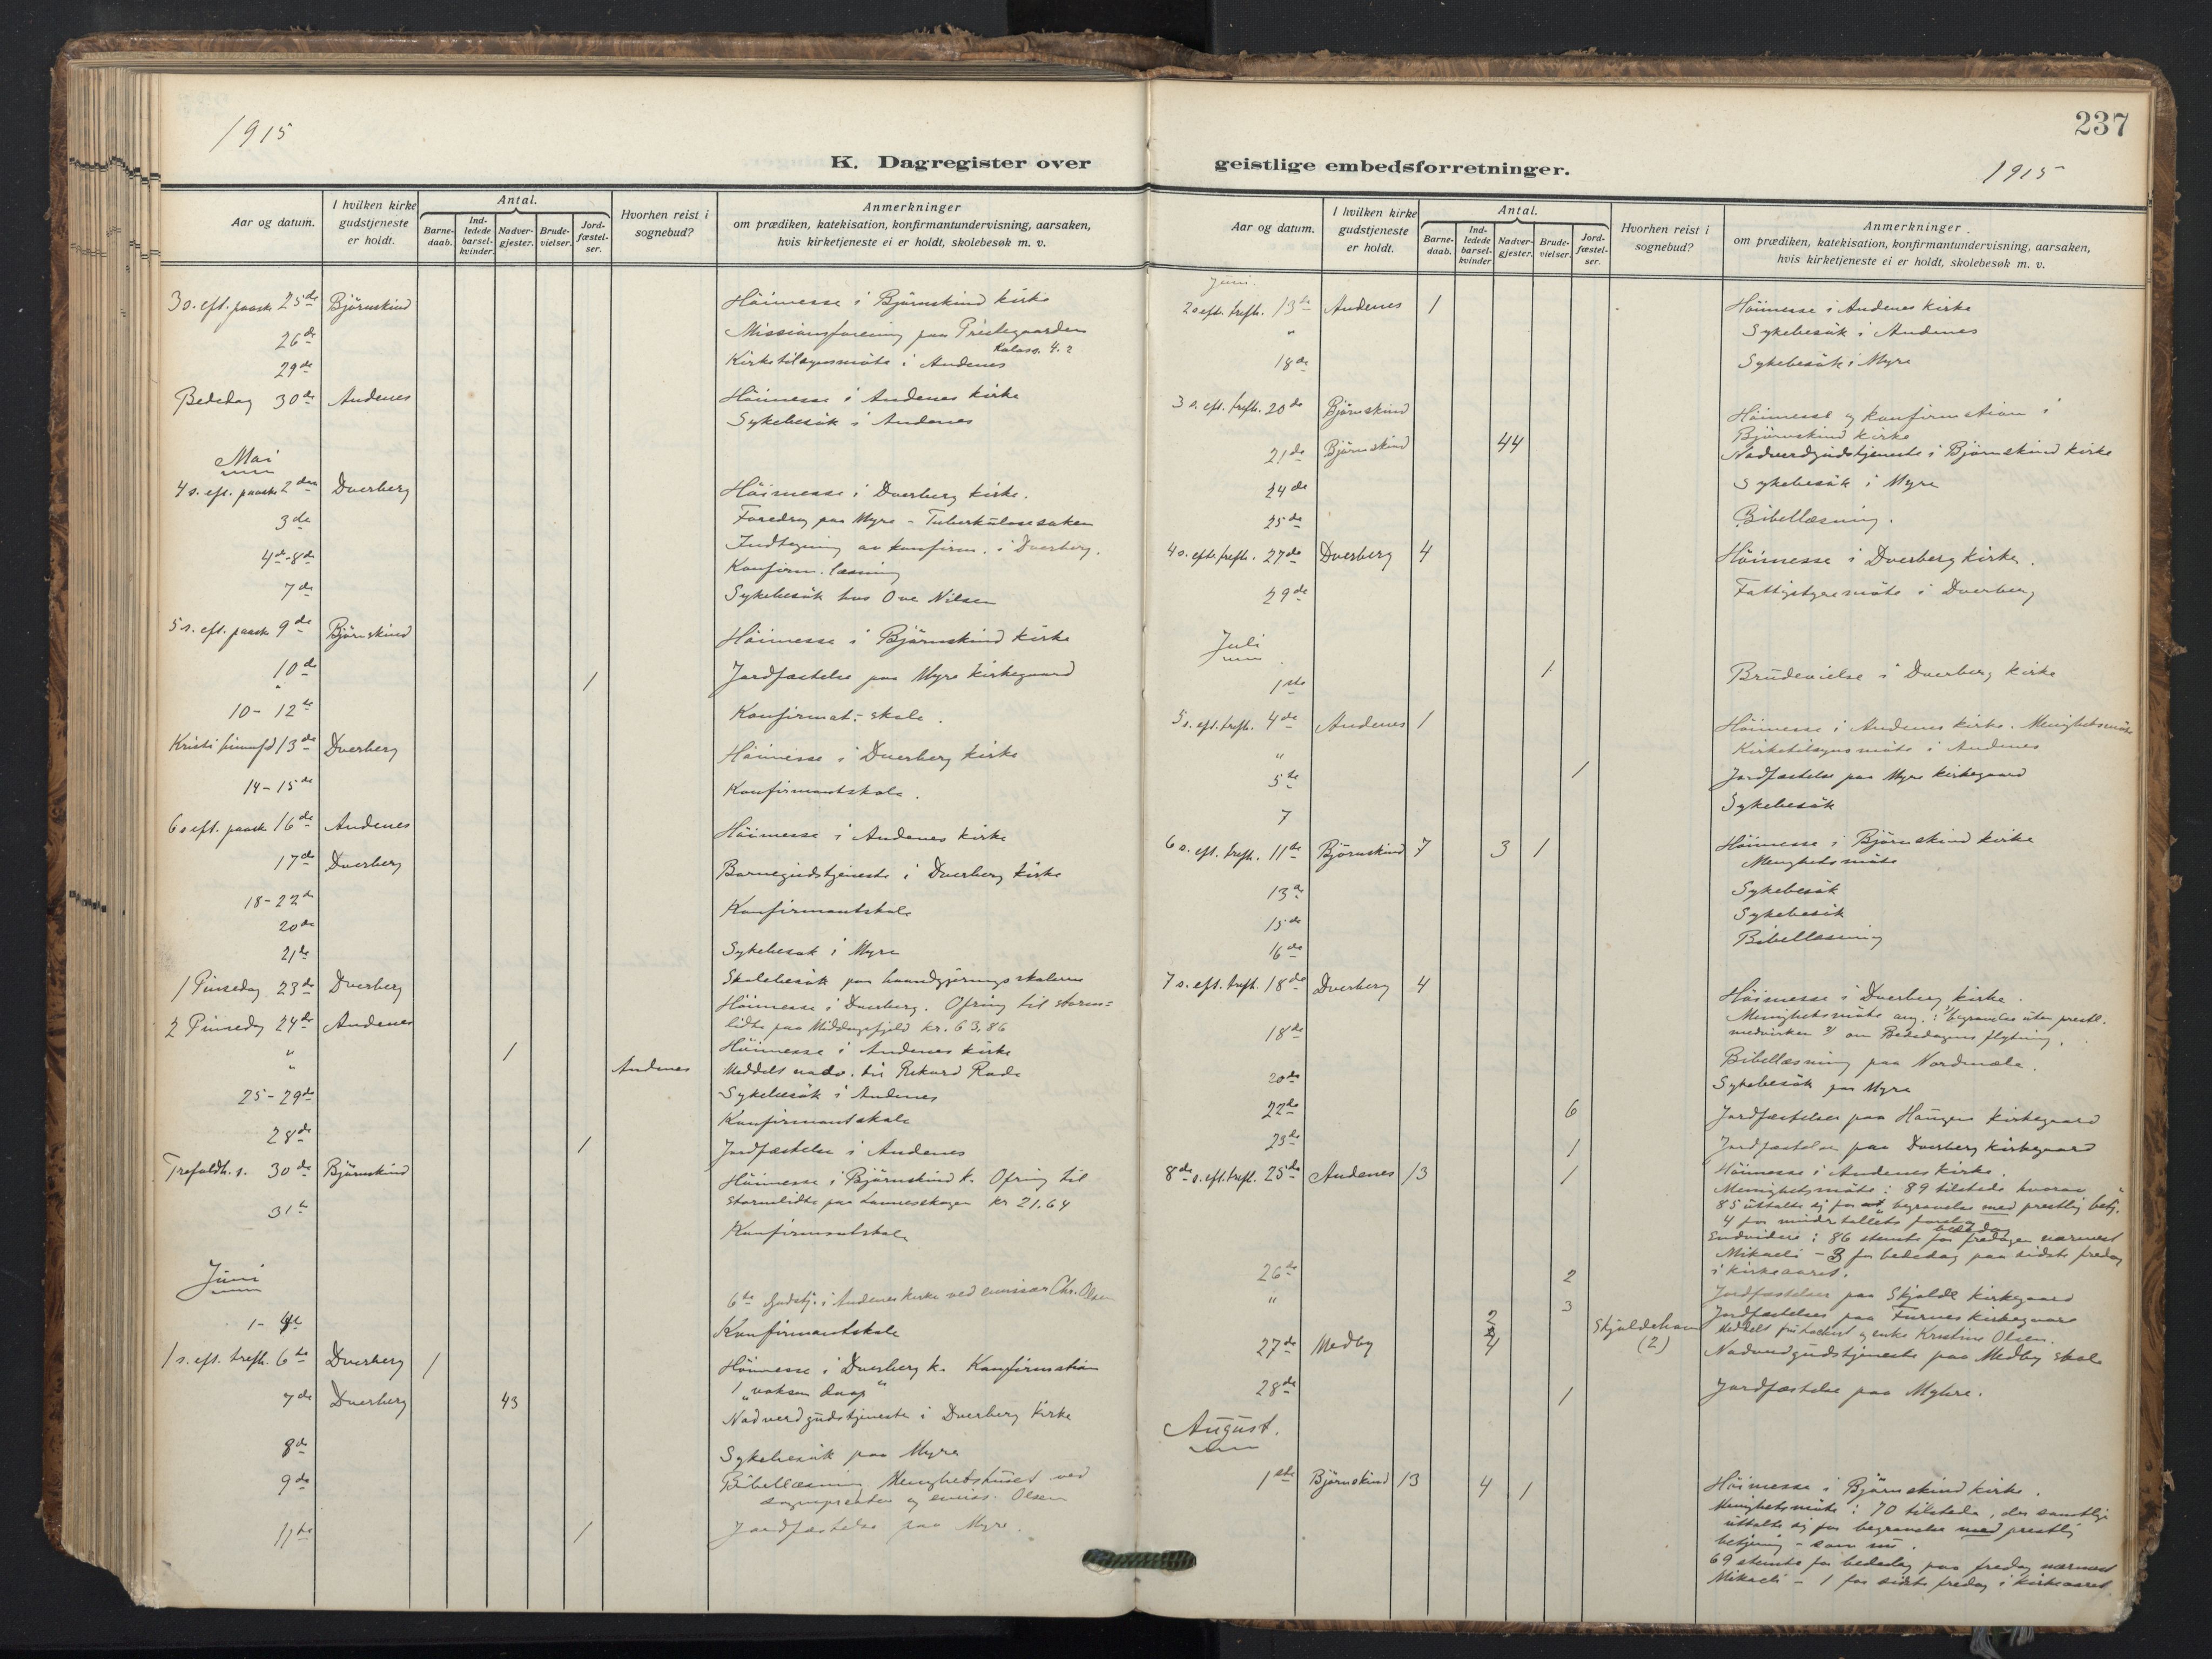 1915
K. Dagregister over
Aar og datum.
I hvilken kirke gudstjeneste er holdt.
Antal.
Barne-daab.
Ind-ledede barsel-kvinder.
Nadver-gjester.
Brude-vielser.
Jord-fæstel-ser.
Hvorhen reist i sognebud?
Anmerkninger
om prædiken, katekisation, konfirmantundervisning, aarsaken,
hvis kirketjeneste ei er holdt, skolebesøk m. v.
3 s. eft. paask. 25de Bjørnskind Höimesse i Bjørnskind kirke
26de Missionsforening paa Prestegaarden
29de Kirketilsynsmöte i Andenes
Bededag 30de Andenes Höimesse i Andenes kirke
Sykebesök i Andenes
Mai
4 s. eft. paask. 2den Dverberg Höimesse i Dverberg kirke.
3de Foredrag paa Myre - Tuberkulosesaken
4de-8de Indtegning av konfirm. i Dverberg.
Konfirm. læsning
7de Sykebesök hos Ove Nilsen
5 s. eft. paask. 9de Bjørnskind Höimesse i Bjørnskind kirke
10de 1 Jordfæstelse paa Myre kirkegaard
10- 12te Konfirmat.-skole.
Kristi himmelf 13de Dverberg Höimesse i Dverberg kirke
14-15de Konfirmantskole.
6 s eft. paask. 16de Andenes Höimesse i Andenes kirke
17de Dverberg Barnegudstjeneste i Dverberg kirke
18-22de Konfirmantskole
20de Sykebesøk i Myre
21de Skolebesök paa haandgjerningsskolen
1 Pinsedag 23de Dverberg Höimesse i Dverberg. Ofring til storm=
lidte paa Middagsfjeld kr. 63,86
2 Pinsedag 24de Andenes Höimesse i Andenes kirke
" 1 Andenes Meddelt nadv. til Rikard Rade
" Sykebesök i Andenes
25-29de Konfirmantskole
28de 1 Jordfæstelse i Andenes
Trefoldh. s. 30de Bjørnskind Höimesse i Bjørnskind k. Ofring til
Stormlidte paa Lannesskogen kr 21,64
31te Konfirmantskole
Juni
6te Gudstj. i Andenes kirke ved emissær Chr. Olsen
1- 4de Konfirmantskole
1 s. eft. trefh. 6te Dverberg 1 Höimesse i Dverberg k. Konfirmation
1 "voksen daap"
7de Dverberg 43 Nadverdgudstjeneste i Dverberg Kirke
8de Sykebesök paa Myre
9de Bibellæsning Menighetshuset ved
sognepresten og emiss. Olsen
11te 1 Jordfæstelse paa Myre.
237
1915
geistlige embedsforretninger.
Aar og datum.
I hvilken kirke gudstjeneste er holdt.
Antal.
Barne-daab.
Ind-ledede barsel-kvinder
Nadver-gjester.
Brude-vielser.
Jord-fæstel-ser.
Hvorhen reist i sognebud?
Anmerkninger
om prædiken, katekisation, konfirmantundervisning, aarsaken,
hvis kirketjeneste ei er holdt, skolebesøk m. v.
Juni.
2 s efter trefh. 13de Andenes 1 Höimesse i Andenes kirke
" Sykebesök i Andenes
18de Sykebesök i Myre
3 s. eft. trefh. 20de Bjørnskind Höimesse og konfirmation i
Bjørnskind kirke
21de Bjørnskind 44 Nadverdgudstjeneste i Bjørnskind kirke
24de Sykebesök i Myre
25de Bibellæsning.
4 s. efter trefh. 27de Dverberg 4 Höimesse i Dverberg kirke.
29de Fattigstyremöte i Dverberg
Juli
1ste 1 Brudevielse i Dverberg kirke
5 s. eft. trefh. 4de Andenes 1 Höimesse i Andenes kirke. Menighetsmöte
" Kirketilsynsmöte i Andenes
5te 1 Jordfæstelse paa Myre kirkegaard
7 Sykebesök
6 s. eft. trefh. 11te Bjørnskind 7 3 1 Höimesse i Bjørnskind kirke
Menighetsmöte
13de Sykebesök
15de Sykebesök
16de Bibellæsning
7 s. eft. trefh. 18de Dverberg 4 Höimesse i Dverberg kirke.
18de Menighetsmöte ang. : begravelse uten prestl.
medvirken og om Bededagens flytning.
20de Bibellæsning paa Nordmæla.
Sykebesök paa Myre
22de 6 Jordfæstelser paa Haugen kirkegaard
23de 1 Jordfæstelse paa Dverberg kirkegaard
8de s. eft. trefh. 25de Andenes 13 1 Höimesse i Andenes kirke.
Menighetsmöte : 89 tilstede hvorav
85 uttalte sig for begravelse med prestlig betj.
4 for mindretallets forslag
Endvidere : 86 stemte for bededag fredagen nærmest
Mikaeli - 3 for bededag paa sidste fredag
i kirkeaaret.
26de 2 Jordfæstelser paa Skjolde kirkegaard
" 3 Jordfæstelser paa Furnes kirkegaard
2 Skjoldehamn (2) Meddelt og enke Kristine Olsen.
27de Medby 4 Nadverdgudstjeneste paa Medby skole
28de 1 Jordfæstelse paa Myhre.
August.
1ste Bjørnskind 13 4 1 Höimesse i Bjørnskind kirke.
Menighetsmöte : 70 tilstede, der samtlige
uttalte sig for begravelse med prestlig
betjening - som nu.
69 stemte for bededag paa fredag nærmest
Mikaeli - 1 for sidste fredag i kirkeaaret.